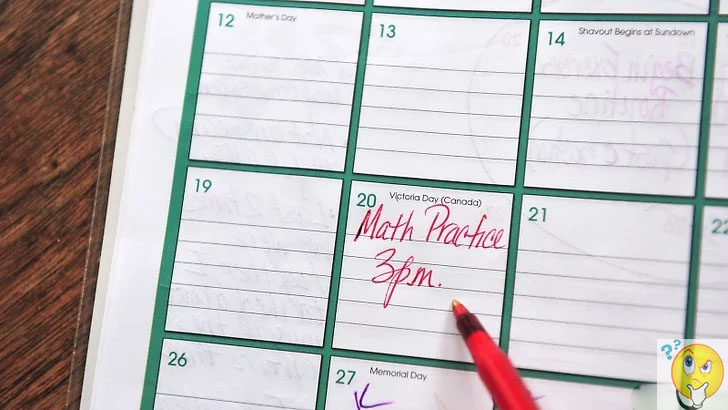 12 Mother's Day
13
14 Shavout Begins at Sundown
19
20 Victoria Day (Canada)
Math Practice
3pm.
21
22
26
27 Memorial Day
??